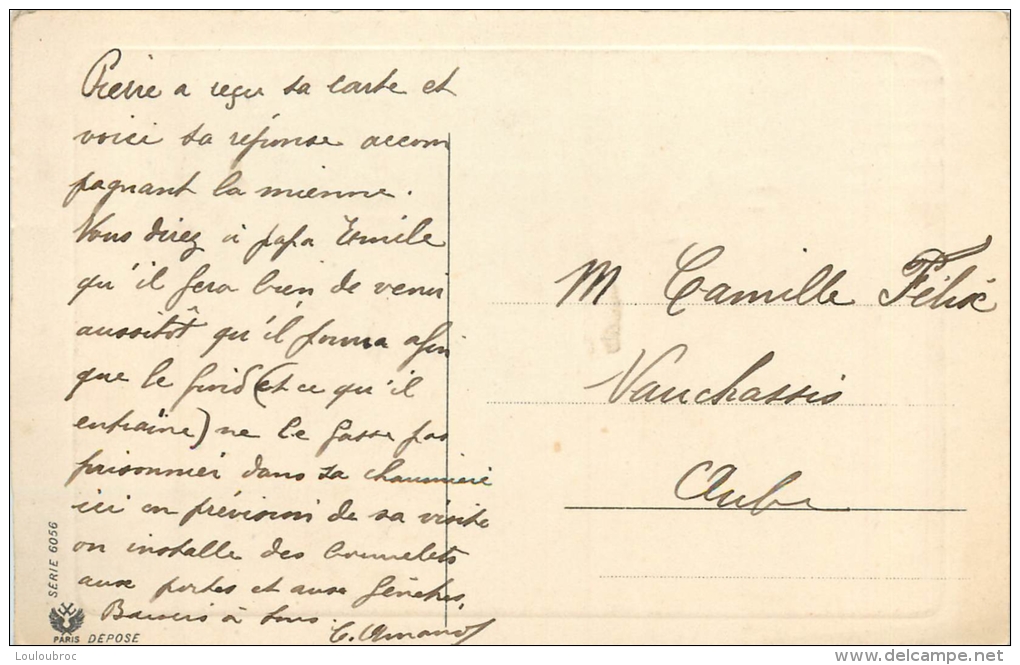 Pierre a reçu ta carte et
voici sa réponse accom
pagnant la mienne.
Vous direz à papa Emile
qu'il fera bien de venir
aussitôt qu'il pourra afin
que le froid (et ce qu'il
entraîne) ne le fasse pas
prisonnier dans sa chaumière
ici en prévision de sa visite
on installe des bourrelets
aux portes et aux fenêtres,
Baisers à tous
C. Amand
M Camille Félix
Vauchassis
Aube
SERIE 6056
PARIS DEPOSE
Louloubroc
delcampe.net